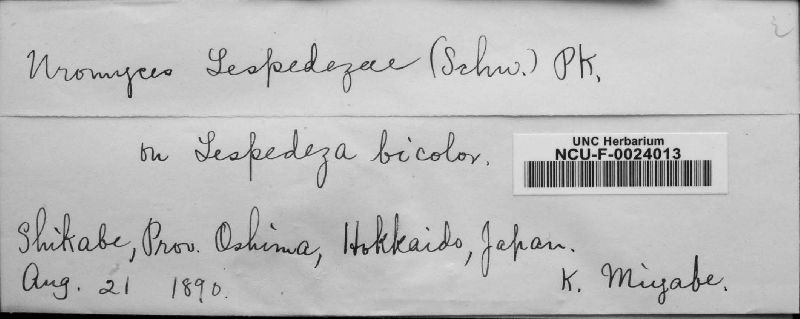 Uromyces Lespedezae (Schw.) Pk.
on Lespedeza bicolor.
UNC Herbarium
NCU-F-0024013
Shikabe, Prov. Oshima, Hokkaido, Japan.
Aug. 21 1890.
K. Miyabe.